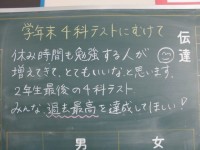 学年末4科テストにむけて
伝達
休み時間も勉強する人が
増えてきて、とてもいいなと思います。
2年生最後の4科テスト
みんな過去最高を達成してほしい♡
男
女